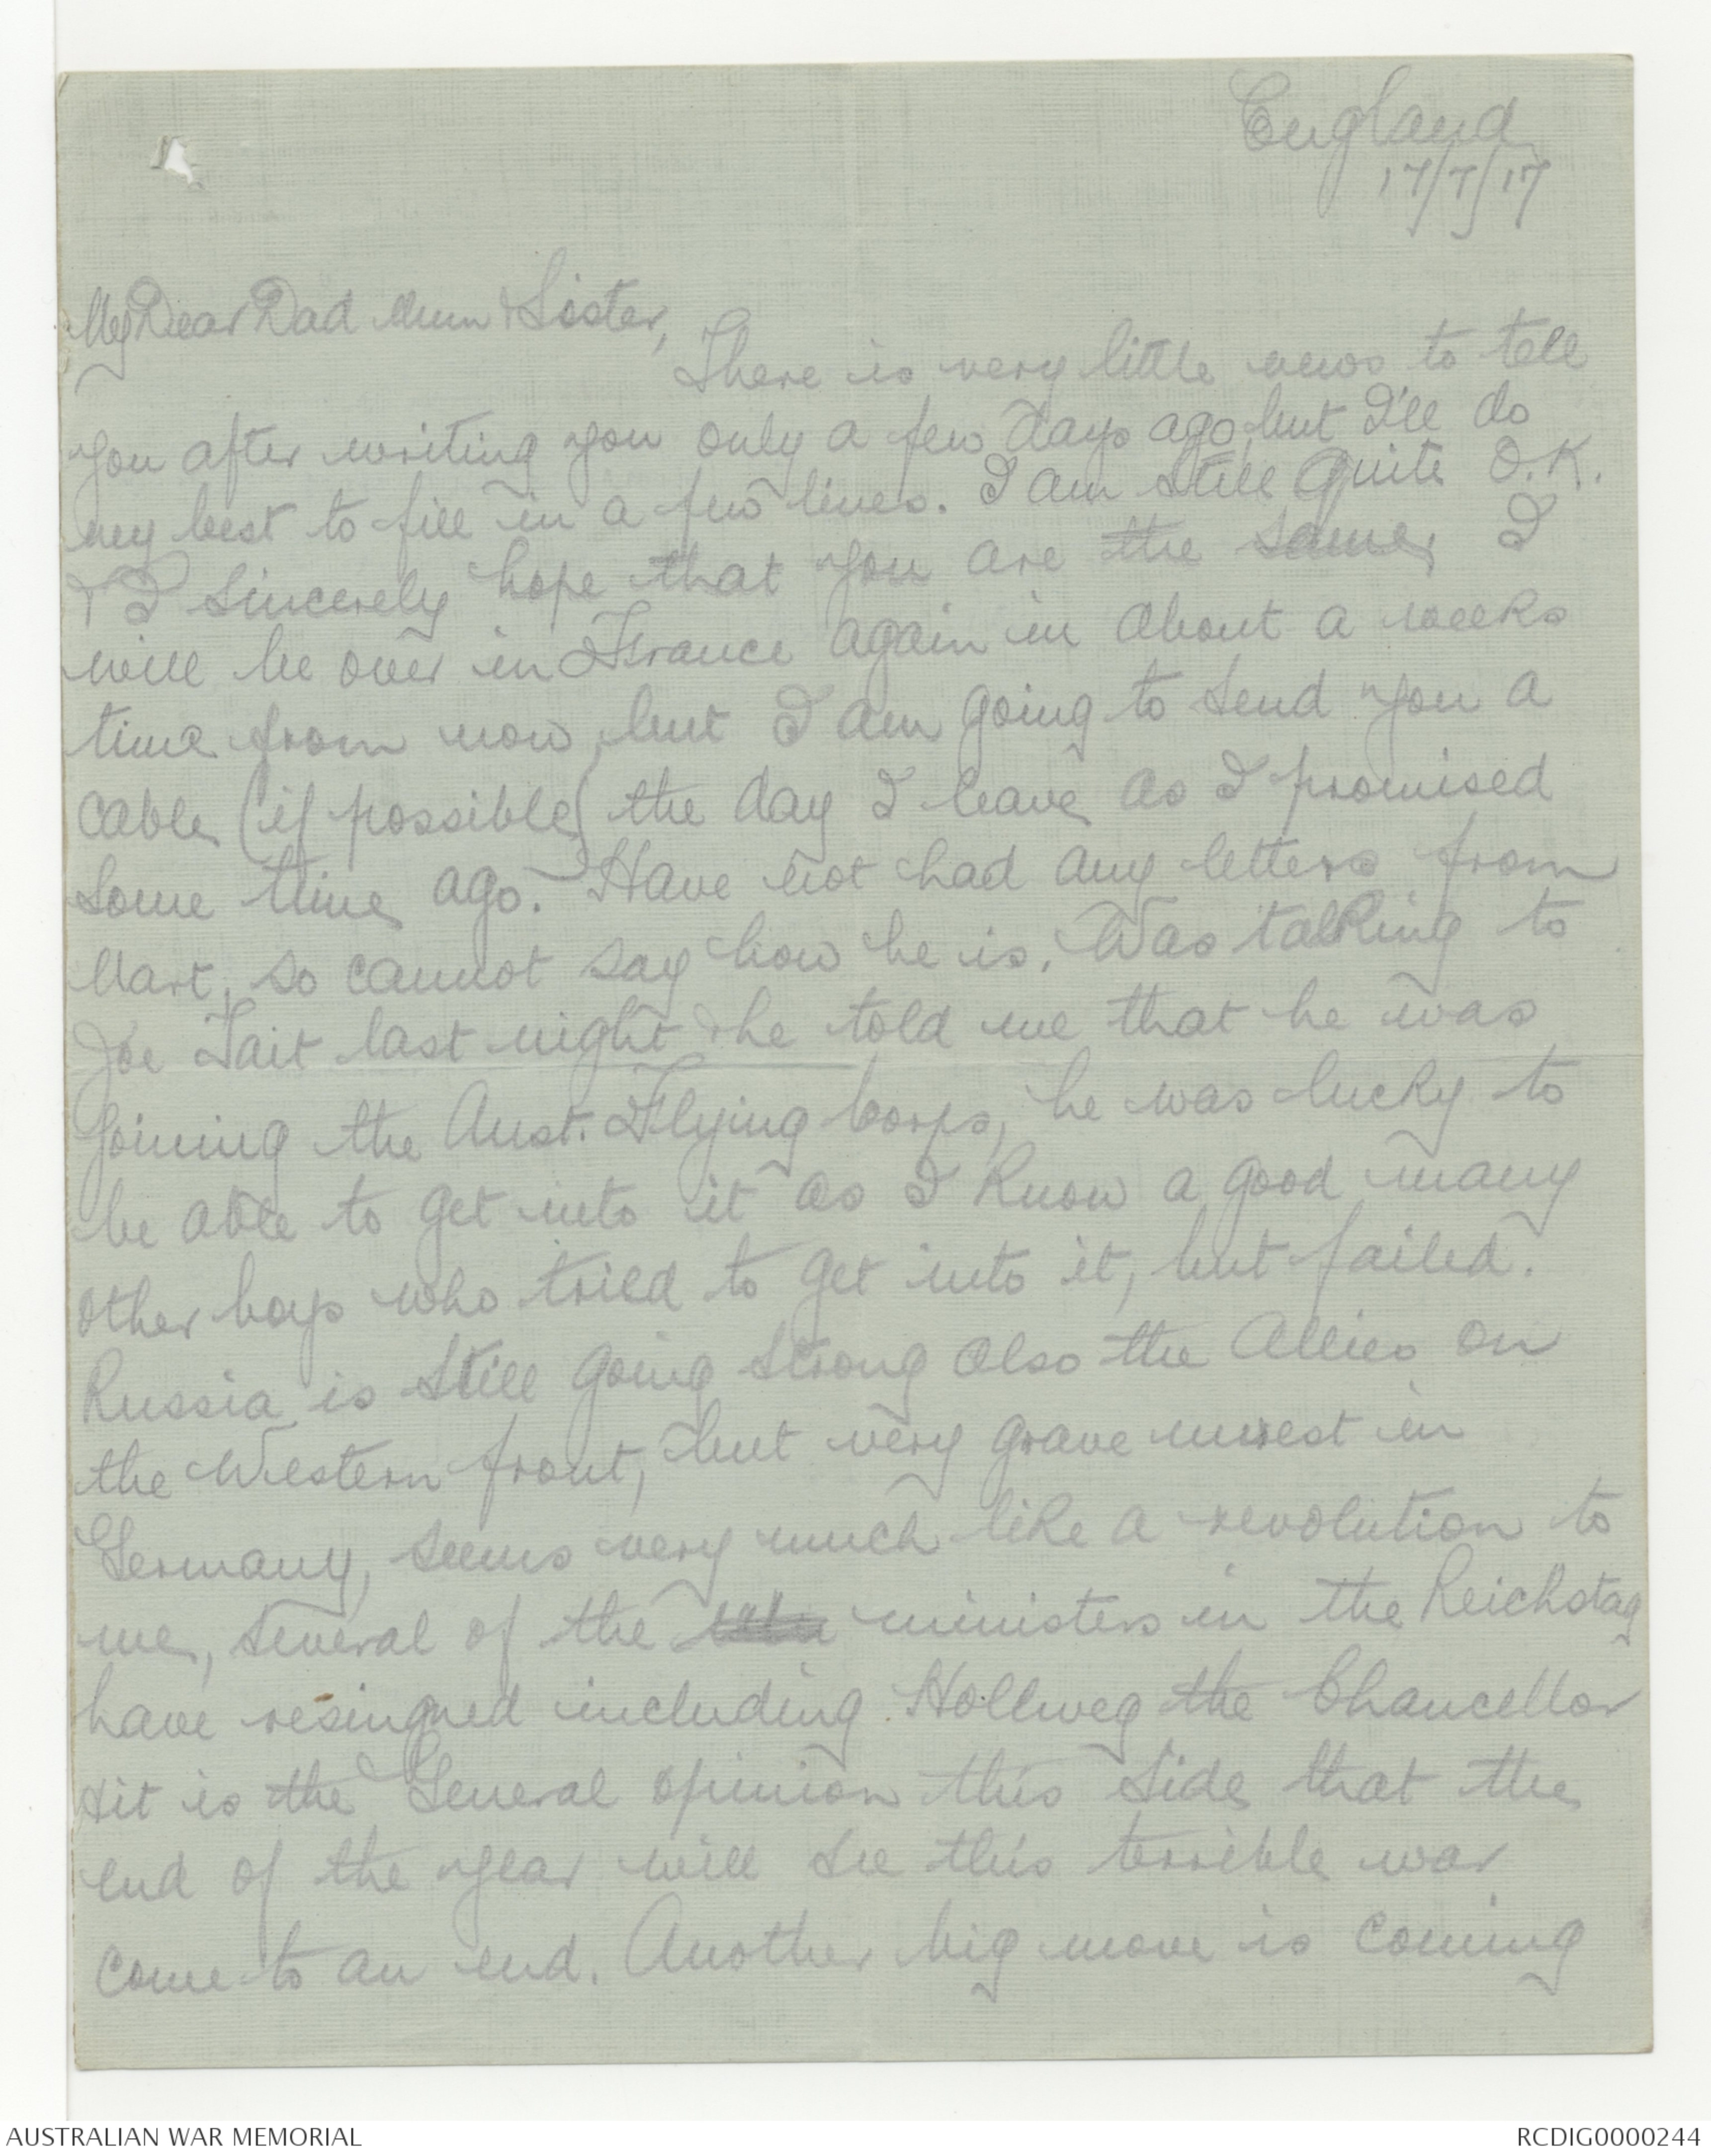 England
17/7/17
My Dear Dad Mum & Sister,
There is very little news to tell
you after writing you only a few days ago, but I'll do
my best to fill in a few lines. I am still quite O.K.
& I sincerely hope that you are the same, I
will be over in France again in about a weeks
time from now, but I am going to send you a
cable (if possible) the day I leave as I promised
some time ago. Have not had any letters from
Mart, so cannot say how he is. Was talking to
Joe Tait last night & he told me that he was
joining the Aust. Flying Corps, he was lucky to
be able to get into it as I know a good many
other boys who tried to get into it, but failed.
Russia is still going strong also the Allies on
the Western front, but very grave unrest in
Germany, seems very much like a revolution to
me, several of the ministers in the Reichstag
have resingned including Hollweg the Chancellor
& it is the General opinion this side that the
end of the year will see this terrible war
come to an end. Another big move is coming
AUSTRALIAN WAR MEMORIAL
RCDIG0000244